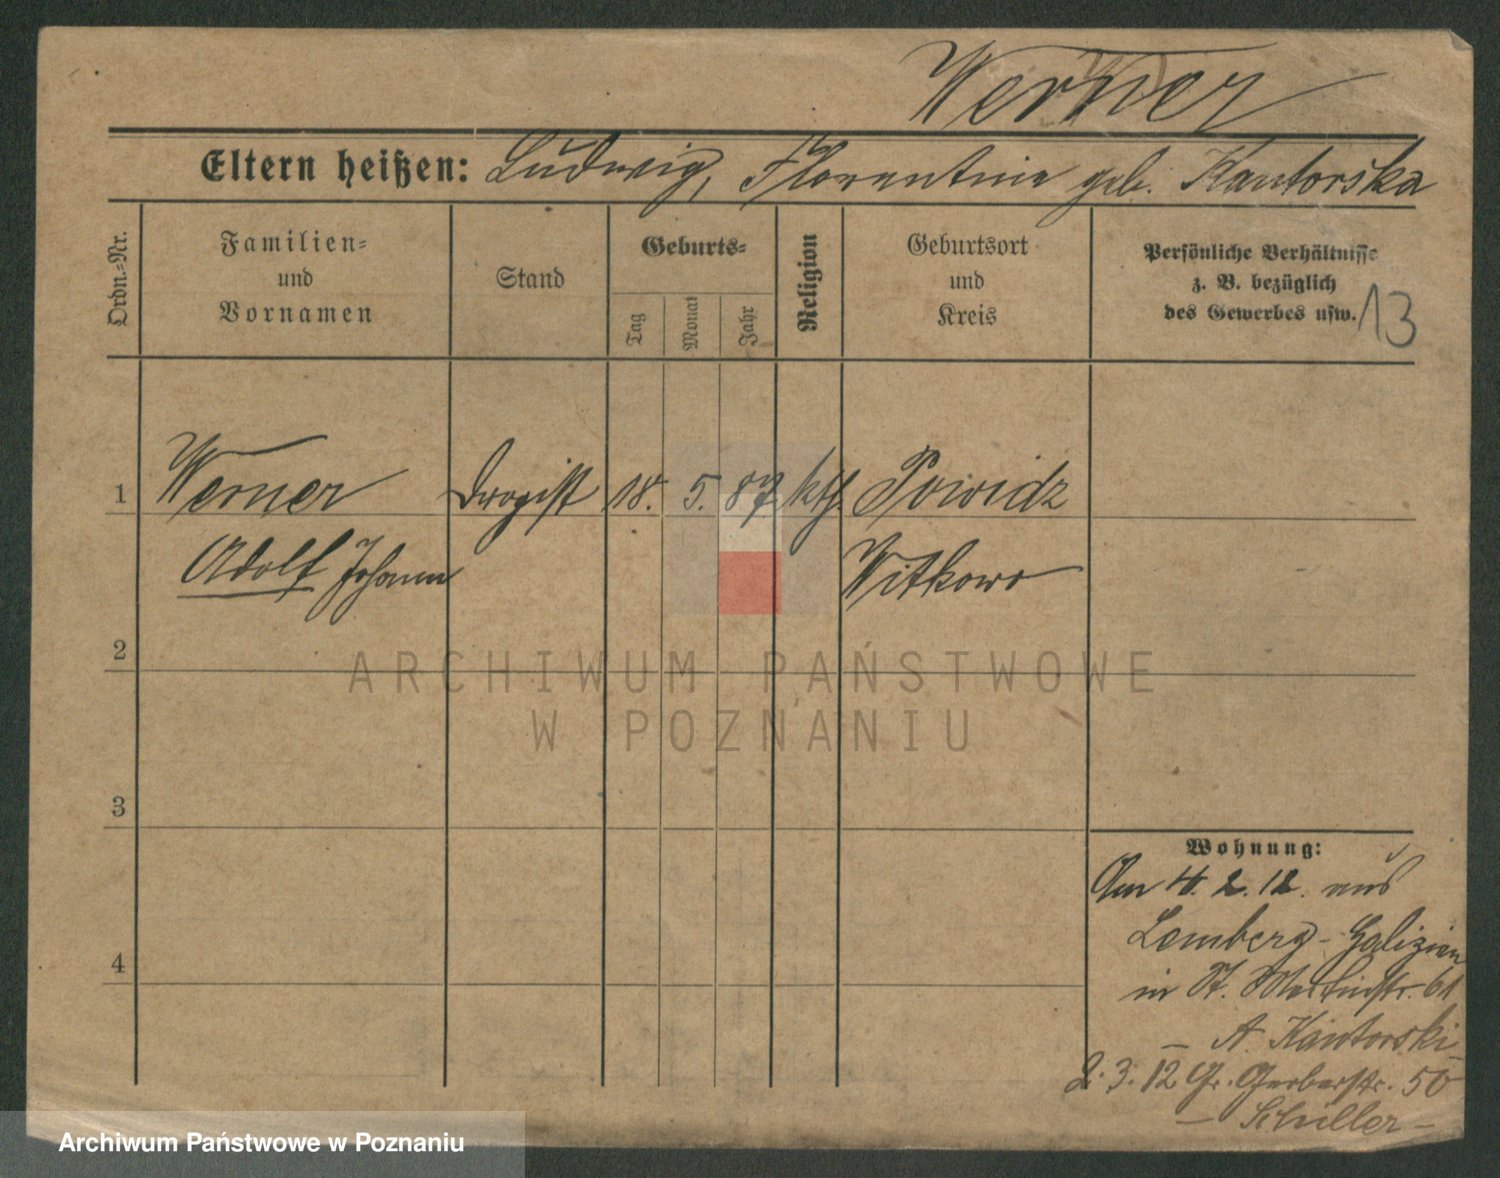 Werner
Eltern heißen: Ludwig, Florentine geb. Kantorska
Ordn.-Nr.
Familien-
und
Vornamen
Stand
Geburts-
Tag
Monat
Jahr
Religion
Geburtsort
und
Kreis
Persönliche Verhältnisse
z. B. bezüglich
des Gewerbes usw.
13
1 Werner Drogist 18. 5. 87 kth. Powidz
Adolf Johann Witkowo
2
3
4
Wohnung:
Am 4. 2. 12. aus
Lemberg - Galizien
in St. Martinstr. 61
— A. Kantorski —
2. 3. 12 Gr. Gerberstr. 50
— Schiller —
ARCHIWUM PAŃSTWOWE
W POZNANIU
Archiwum Państwowe w Poznaniu